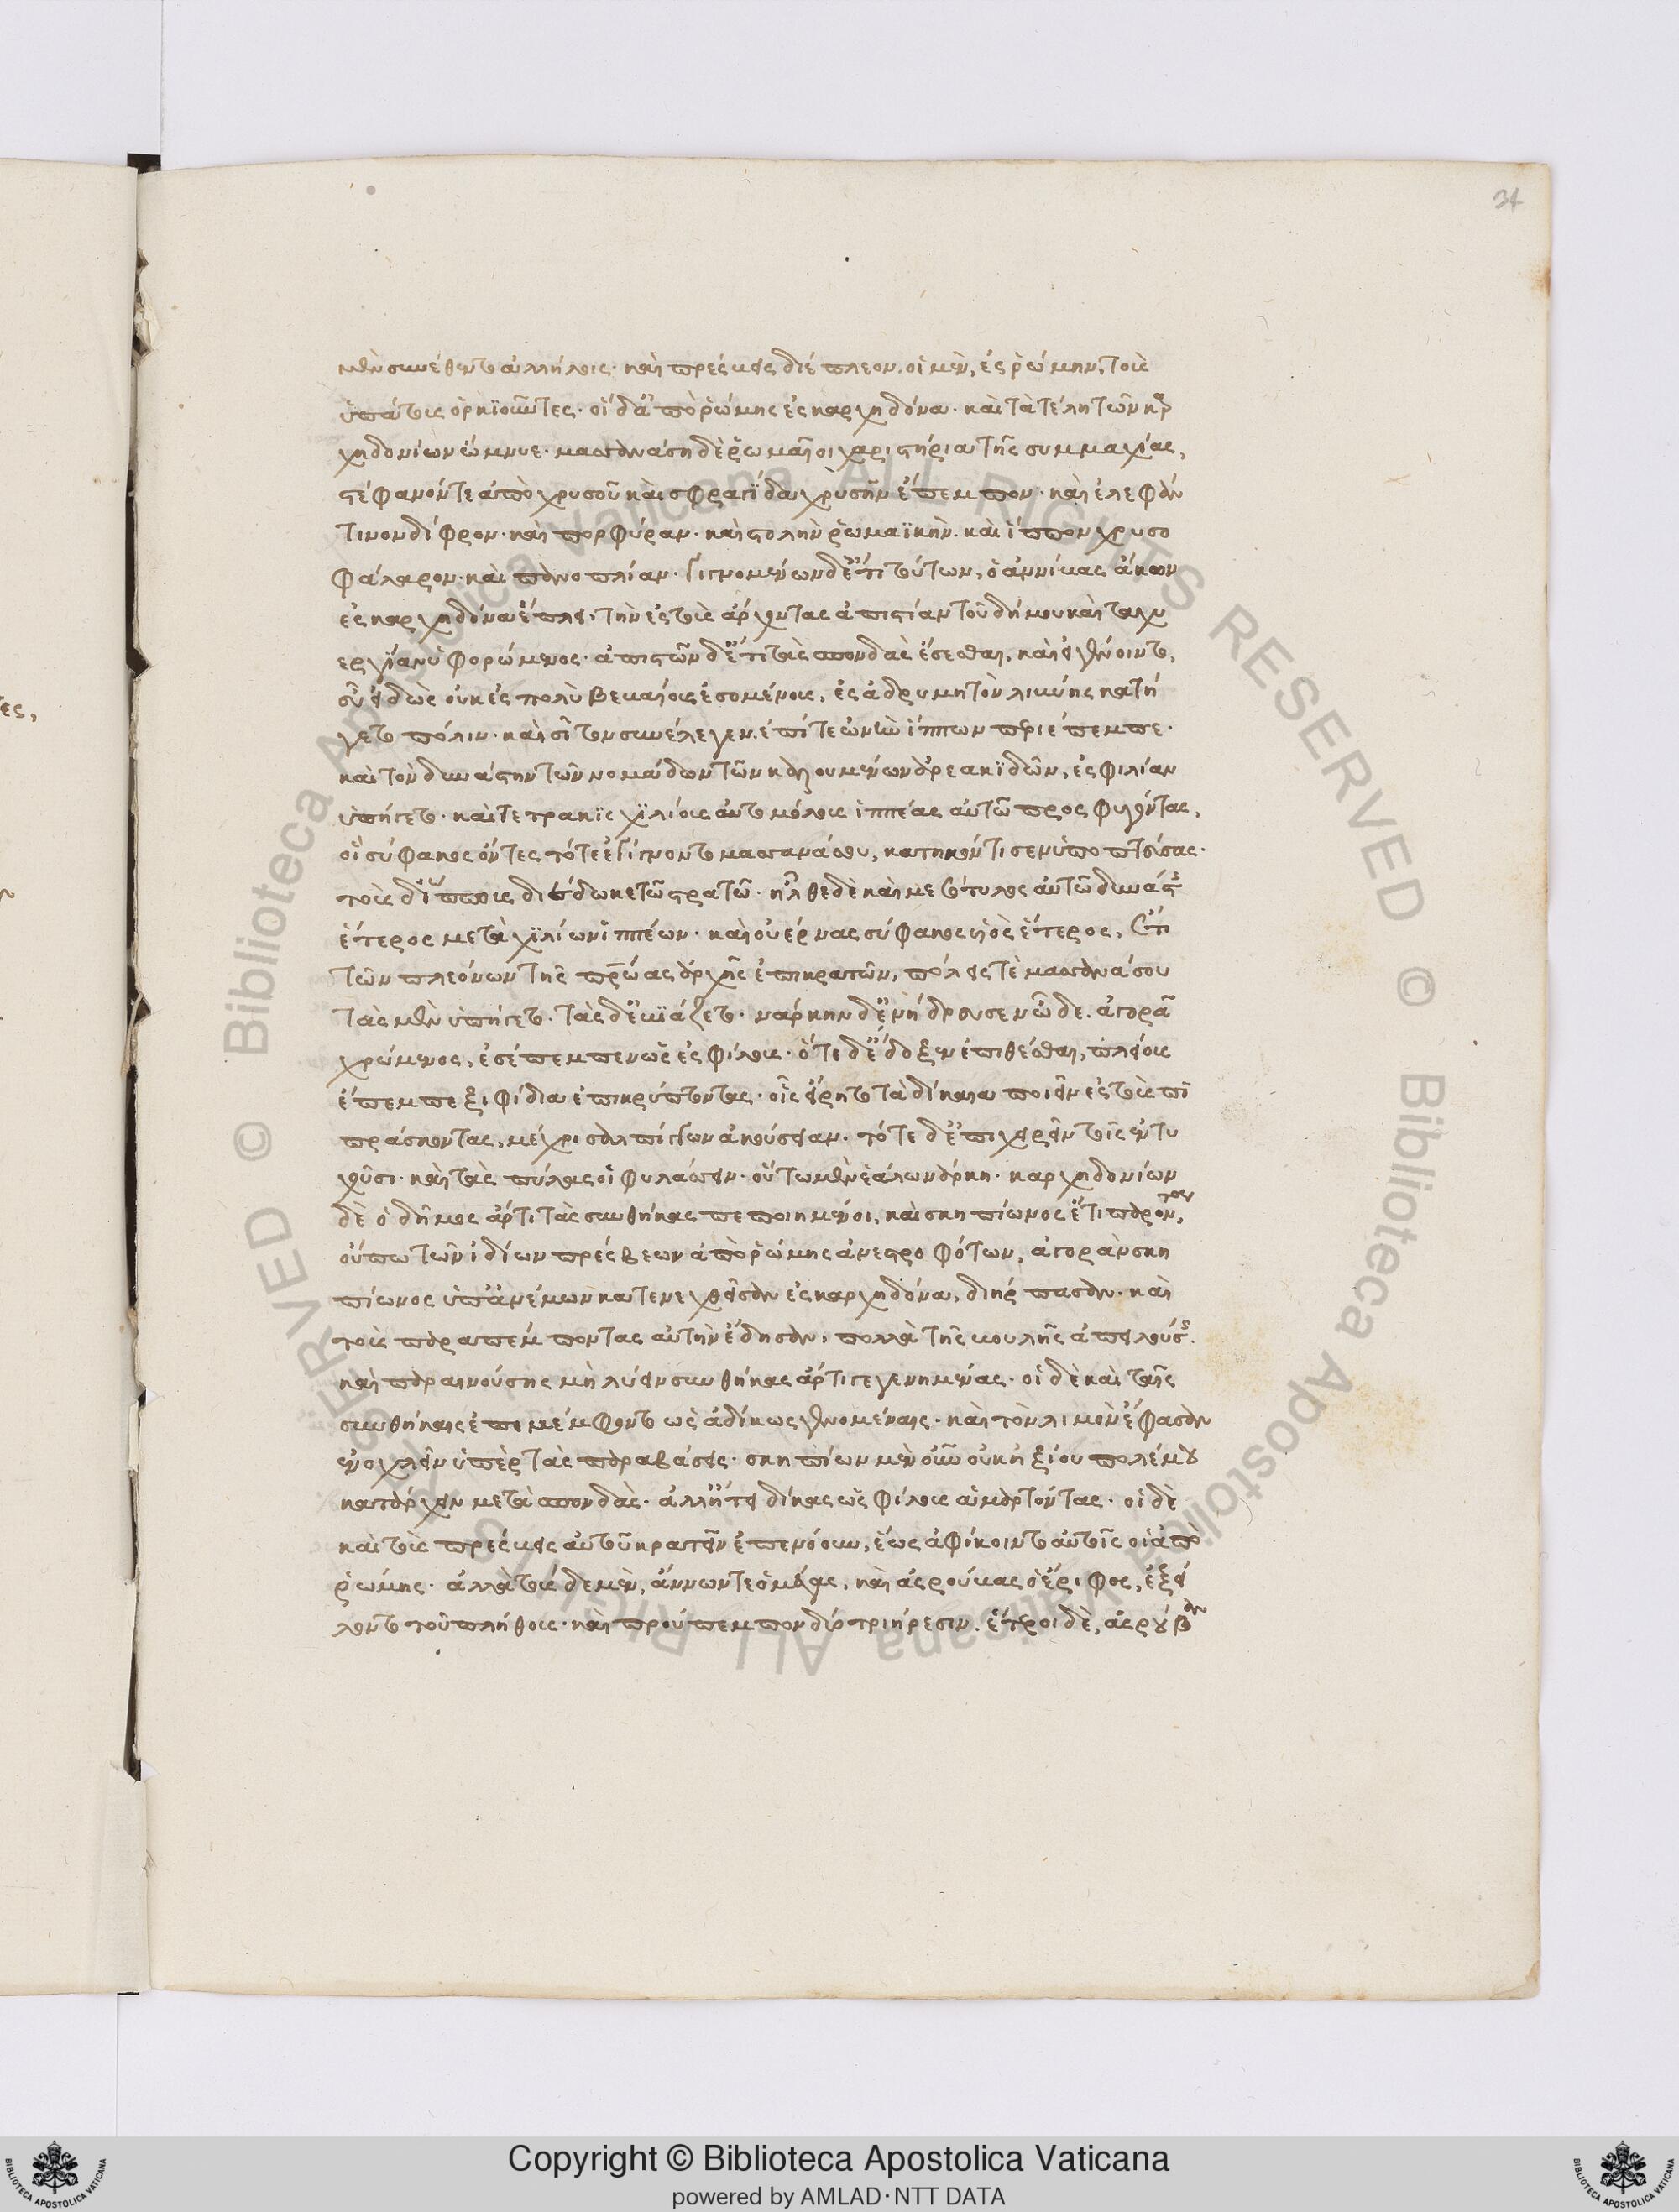 34
μὲν συνέθεντο ἀλλήλοις· καὶ πρέσβεις διέπλεον. οἱ μὲν, ἐς ῥώμην, τοὺς
ὑπάτους ὁρκιοῦντες. οἱ δ' ἀπὸ ῥώμης ἐς καρχηδόνα. καὶ τὰ τέλη τῶν καρ
χηδονίων ὤμνυε. μασσανάσσῃ δὲ ῥωμαῖοι χαριστήρια τῆς συμμαχίας,
στέφανόν τε ἀπὸ χρυσοῦ καὶ σφραγίδα χρυσῆν ἔπεμπον. καὶ ἐλεφάν
τινον δίφρον. καὶ πορφύραν. καὶ στολὴν ῥωμαϊκὴν. καὶ ἵππον χρυσο
φάλαρον. καὶ πανοπλίαν. γιγνομένων δ' ἔτι τούτων, ὁ ἀννίβας ἄκων
ἐς καρχηδόνα ἔπλει. τὴν ἐς τοὺς ἄρχοντας ἀπιστίαν τοῦ δήμου καὶ ταχυ
εργίαν ὑφορώμενος. ἀπιστῶν δ' ἔτι τὰς σπονδὰς ἔσεσθαι, καὶ εἰ γένοιντο,
εὖ εἰδὼς οὐκ ἐς πολὺ βεβαίους ἐσομένας, ἐς ἀδρυμητὸν λιβύης κατή
γετο πόλιν. καὶ σῖτον συνέλεγεν. ἐπί τε ὠνὴν ἵππων περιέπεμπε.
καὶ τὸν δυνάστην τῶν νομάδων τῶν καλουμένων ἀρεακιδῶν, ἐς φιλίαν
ὑπήγετο. καὶ τετρακισχιλίους αὐτομόλους ἱππέας αὐτῶ προσφυγόντας,
οἳ σύφακος ὄντες τότε ἐγίγνοντο μασσανάσσου, κατηκόντισεν ὑποπτεύσας.
τοὺς δ' ἵππους διέδωκε τῶ στρατῶ. ἦλθε δὲ καὶ μεσότυλος αὐτῶ δυνάστης
ἕτερος μετὰ χιλίων ἱππέων. καὶ οὐέρνας σύφακος υἱὸς ἕτερος, ἔτι
τῶν πλεόνων τῆς πατρώας ἀρχῆς ἐπικρατῶν, πόλεις τὲ μασσανάσσου
τὰς μὲν ὑπήγετο. τὰς δ' ἐβιάζετο. νάρκην δ' ἐνήδρευσεν ὧδε. ἀγορᾶ
χρώμενος, ἐσέπεμπεν ὡς ἐς φίλους. ὅτε δ' ἔδοξεν ἐπιθέσθαι, πλείους
ἔπεμπε ξιφίδια ἐπικρύπτοντας. οἷς εἴρητο τὰ δίκαια ποιεῖν ἐς τοὺς πι
πράσκοντας, μέχρι σαλπίγγων ἀκούσειαν. τότε δ' ἐπιχειρεῖν τοῖς ἐντυ
χοῦσι. καὶ τὰς πύλας οἱ φυλάσσειν. οὕτω μὲν ἑάλω νάρκη. καρχηδονίων
δὲ ὁ δῆμος ἄρτι τὰς συνθήκας πεποιημένοι, καὶ σκηπίωνος ἔτι παρόντος,
οὔπω τῶν ἰδίων πρέσβεων ἀπὸ ῥώμης ἀνεστροφότων, ἀγορὰν σκη
πίωνος ὑπ' ἀνέμων κατενεχθεῖσαν ἐς καρχηδόνα, διήρπασαν. καὶ
τοὺς παραπέμποντας αὐτὴν ἔδησαν, πολλὰ τῆς βουλῆς ἀπειλούσης.
καὶ παραινούσης μὴ λύειν συνθήκας ἄρτι γεγενημένας. οἱ δὲ καὶ ταῖς
συνθήκαις ἐπεμέμφοντο ὡς ἀδίκως γενομέναις. καὶ τὸν λιμὸν ἔφασαν
ἐνοχλεῖν ὑπὲρ τὰς παραβάσεις. σκηπίων μὲν οὖν οὐκ ἠξίου πολέμου
κατάρχειν μετὰ σπονδὰς. ἀλλ' ᾔτει δίκας ὡς φίλους ἁμαρτόντας. οἱ δὲ
καὶ τοὺς πρέσβεις αὐτοῦ κρατεῖν ἐπενόουν, ἕως ἀφίκοιντο αὐτοῖς οἱ ἀπὸ
ῥώμης. ἀλλὰ τούσδε μὲν, ἄννων τε ὁ μέγας, καὶ ἀσρούβας ὁ ἔριφος, ἐξεί
λοντο τοῦ πλήθους. καὶ προύπεμπον δύο τριήρεσιν. ἕτεροι δὲ, ἀσρούβαν